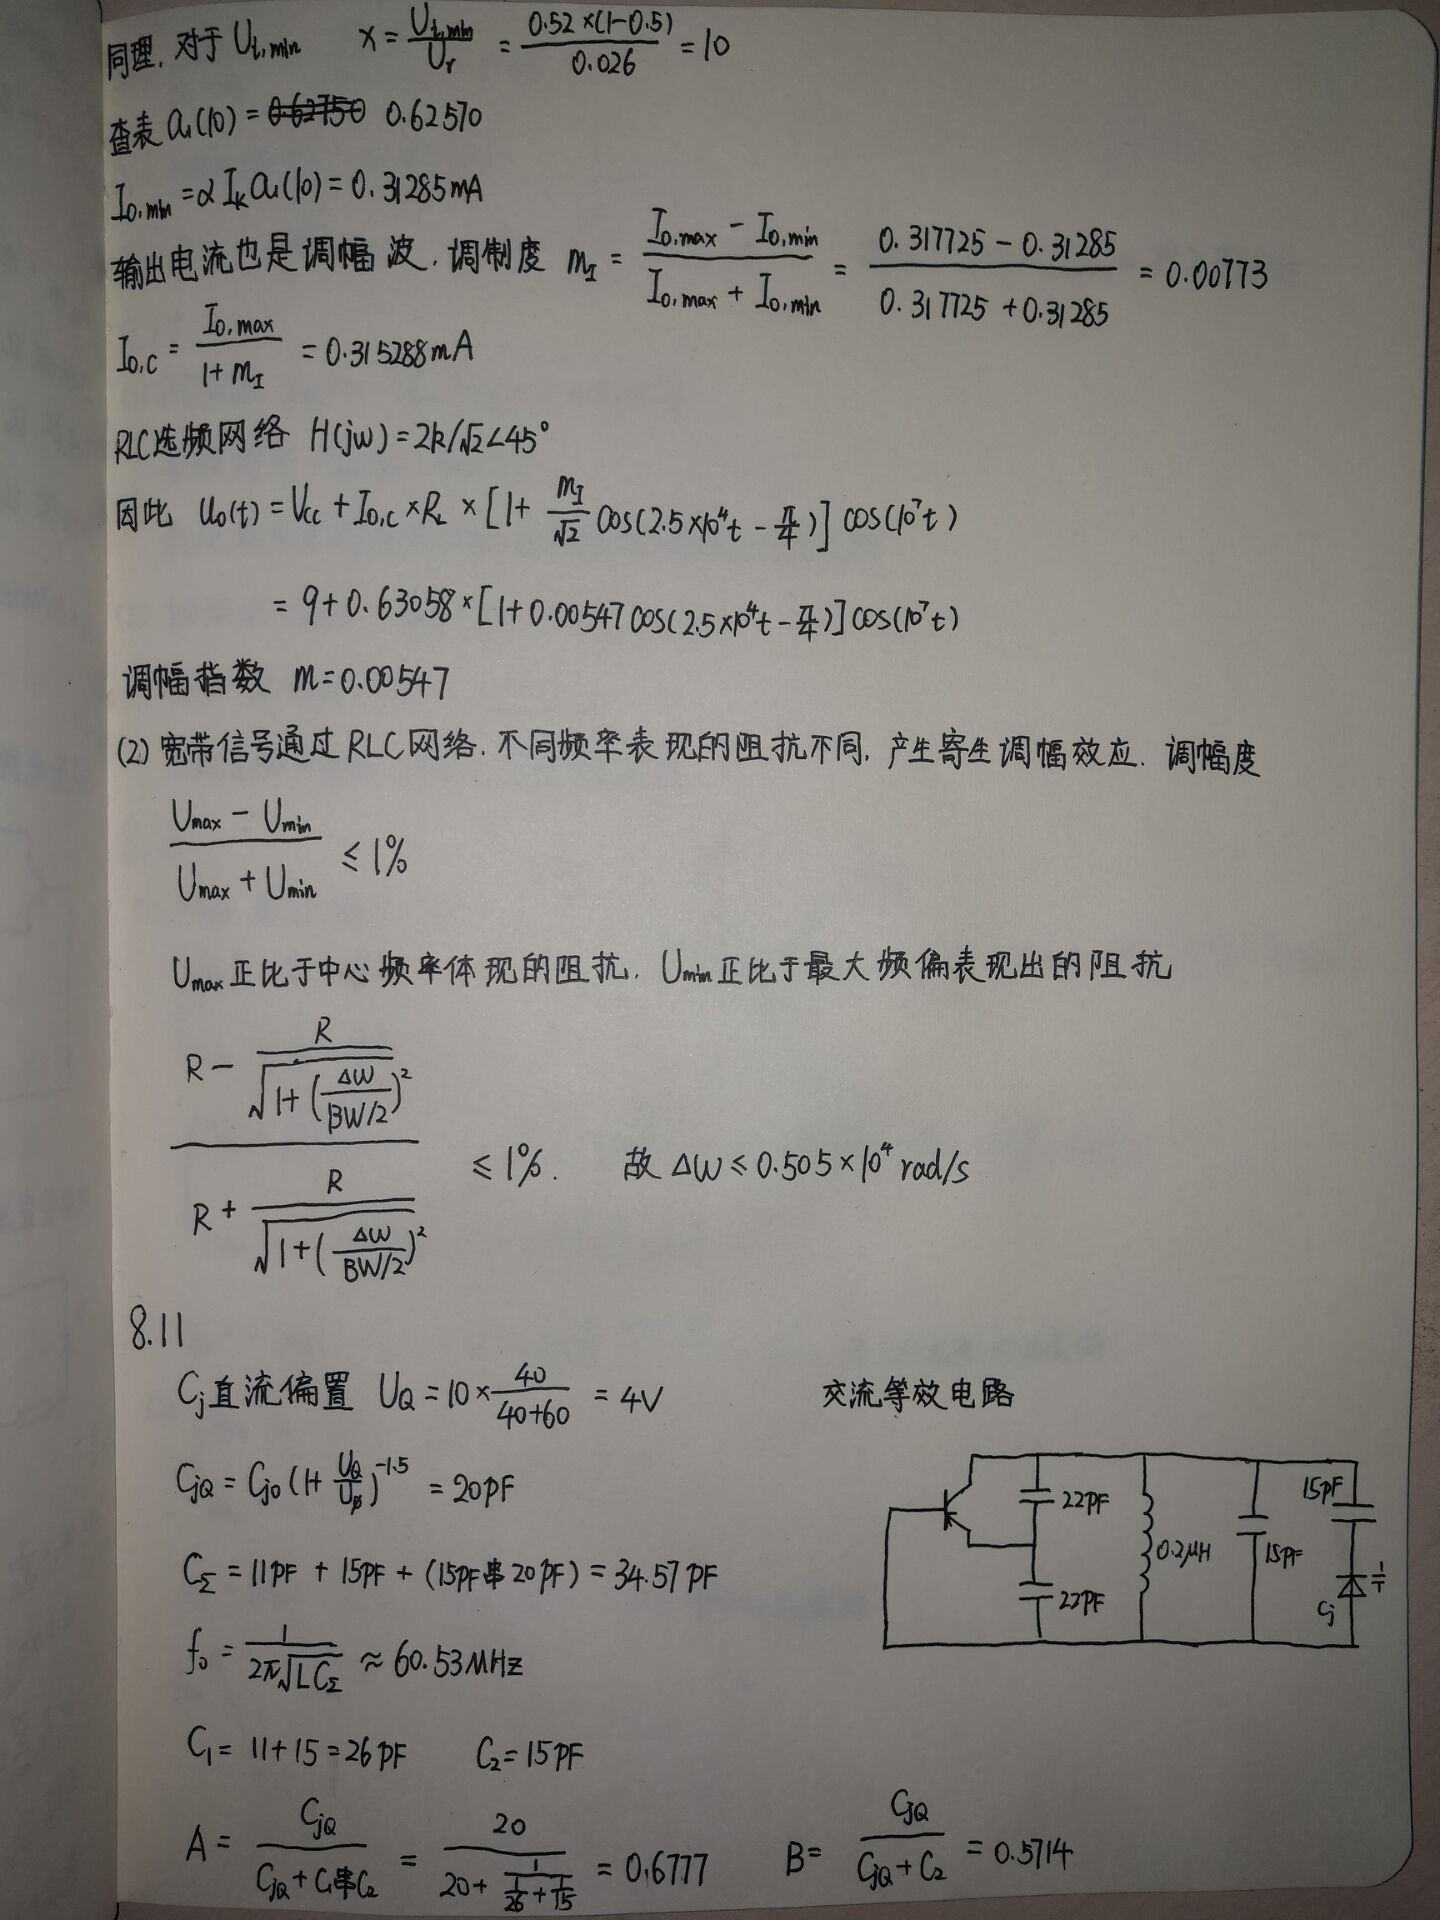 同理,对于 U_{i,min}  x = U_{i,min}/U_r = 0.52×(1-0.5)/0.026 = 10
查表 a_1(10) = 0.62570
I_{0,min} = αI_k a_1(10) = 0.31285mA
输出电流也是调幅波,调制度 m_I = (I_{0,max} - I_{0,min})/(I_{0,max} + I_{0,min}) = (0.317725 - 0.31285)/(0.317725 + 0.31285) = 0.00773
I_{0,C} = I_{0,max}/(1+m_I) = 0.315288mA
RLC选频网络 H(jw) = 2k/√2∠45°
因此 u_0(t) = V_{CC} + I_{0,C} × R_L × [1 + m_I/√2 cos(2.5×10^4t - π/4)] cos(10^7t)
= 9 + 0.63058 × [1 + 0.00547 cos(2.5×10^4t - π/4)] cos(10^7t)
调幅指数 m = 0.00547
(2) 宽带信号通过RLC网络,不同频率表现的阻抗不同,产生寄生调幅效应.调幅度
(U_{max} - U_{min})/(U_{max} + U_{min}) ≤ 1%
U_{max}正比于中心频率体现的阻抗,U_{min}正比于最大频偏表现出的阻抗
(R - R/√(1+(ΔW/(BW/2))^2))/(R + R/√(1+(ΔW/(BW/2))^2)) ≤ 1%. 故 ΔW ≤ 0.505×10^4 rad/s
8.11
C_j直流偏置 U_Q = 10×40/(40+60) = 4V
交流等效电路
C_{jQ} = C_{j0}(1+U_Q/U_ø)^{-1.5} = 20pF
C_Σ = 11pF + 15pF + (15pF串20pF) = 34.57pF
f_0 = 1/(2π√(LC_Σ)) ≈ 60.53MHz
C_1 = 11+15 = 26pF  C_2 = 15pF
A = C_{jQ}/(C_{jQ} + C_1串C_2) = 20/(20 + 1/(1/26 + 1/15)) = 0.6777  B = C_{jQ}/(C_{jQ} + C_2) = 0.5714
22pF
22pF
0.2μH
15pF
15pF
C_j